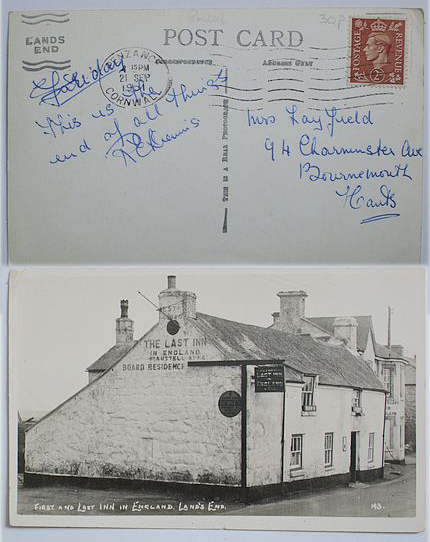 30p
LANDS
END
PENZANCE
PM
21 SEP
CORNWALL
POST CARD
CORRESPONDENCE
ADDRESS ONLY
POSTAGE
REVENUE
2
THIS IS A REAL PHOTOGRAPH
This is the
end of all things
Mrs Layfield
94 Charminster Ave
Bournemouth
Hants
THE LAST INN
IN ENGLAND
ST AUSTELL ALES
BOARD RESIDENCE
LAST INN
ENGLAND
FIRST AND LAST INN IN ENGLAND. LAND'S END.